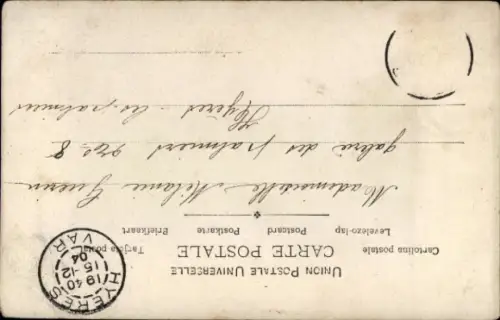 UNION POSTALE UNIVERSELLE
CARTE POSTALE
Cartolina postale Tarjeta postal
Levelezo-lap Postcard Postkarte Briefkaart
Mademoiselle Mélanie Guerin
galerie des palmiers
Hyères - les palmiers
HYERES
19 40
15-12
04
VAR